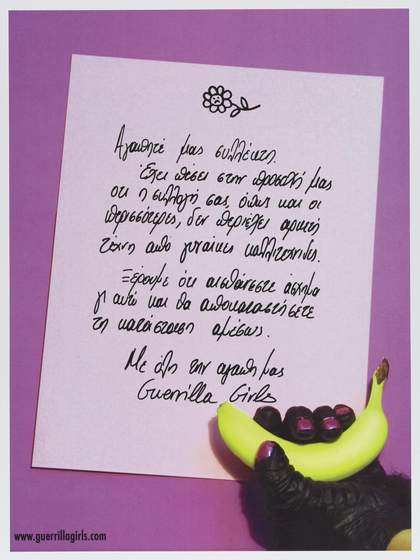 Αγαπητέ μας συλλέκτη.
Έχει πέσει στην προσοχή μας
οτι η συλλογή σας, όπως και οι
περισσότερες, δεν περιέχει αρκετή
τέχνη από γυναίκες καλλιτέχνιδες.
Ξέρουμε ότι αισθάνεστε άσχημα
γι αυτό και θα αποκαταστήσετε
τη κατάσταση αμέσως.
Με όλη την αγαπη μας
Guerrilla Girls
www.guerrillagirls.com